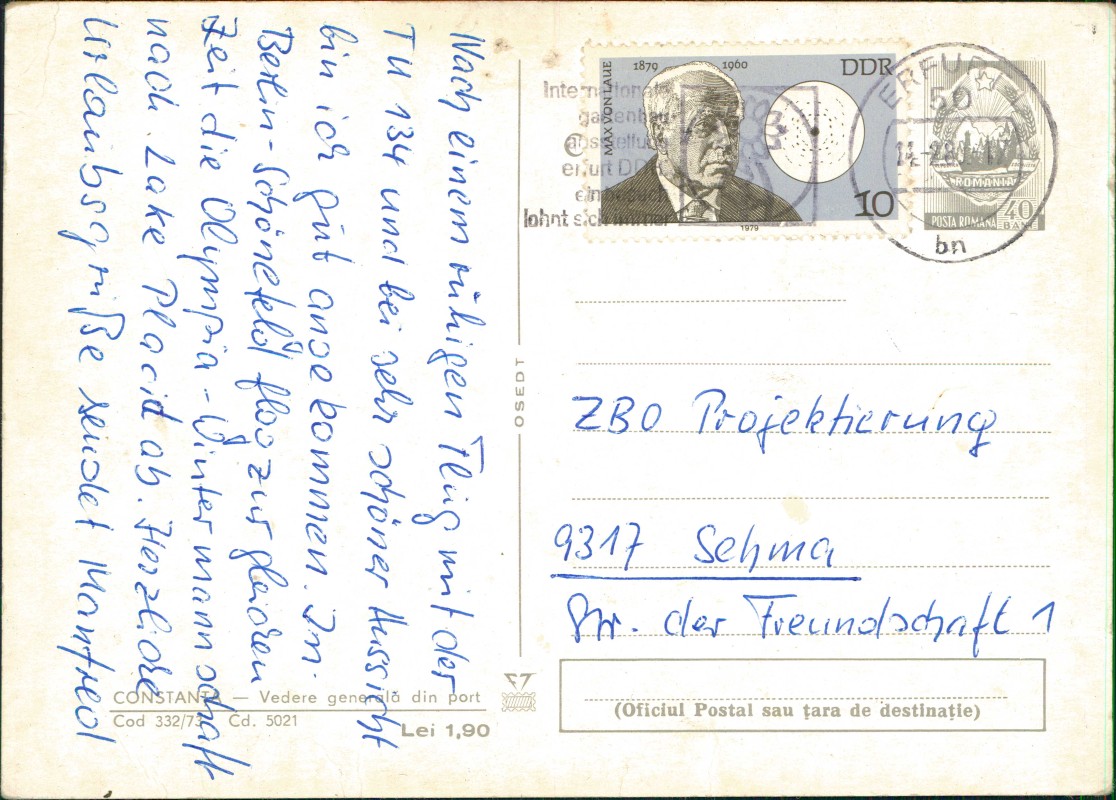 Nach einem ruhigen Flug mit der
TU 134 und bei sehr schöner Aussicht
bin ich gut angekommen. In
Berlin-Schönefeld flog zur gleichen
Zeit die Olympia-Wintermannschaft
nach Lake Placid ab. Herzliche
Urlaubsgrüße sendet Manfred
CONSTANȚA — Vedere generală din port
Cod 332/73 Cd. 5021
Lei 1,90
OSEDT
MAX VON LAUE
1879 1960
DDR
10
1979
Internationale
gartenbau
ausstellung
erfurt DDR
ein besuch
lohnt sich immer
ERFURT 1
50
bn
ROMANIA
POSTA ROMANA
40
BANI
ZBO Projektierung
9317 Sehma
Str. der Freundschaft 1
(Oficiul Postal sau țara de destinație)